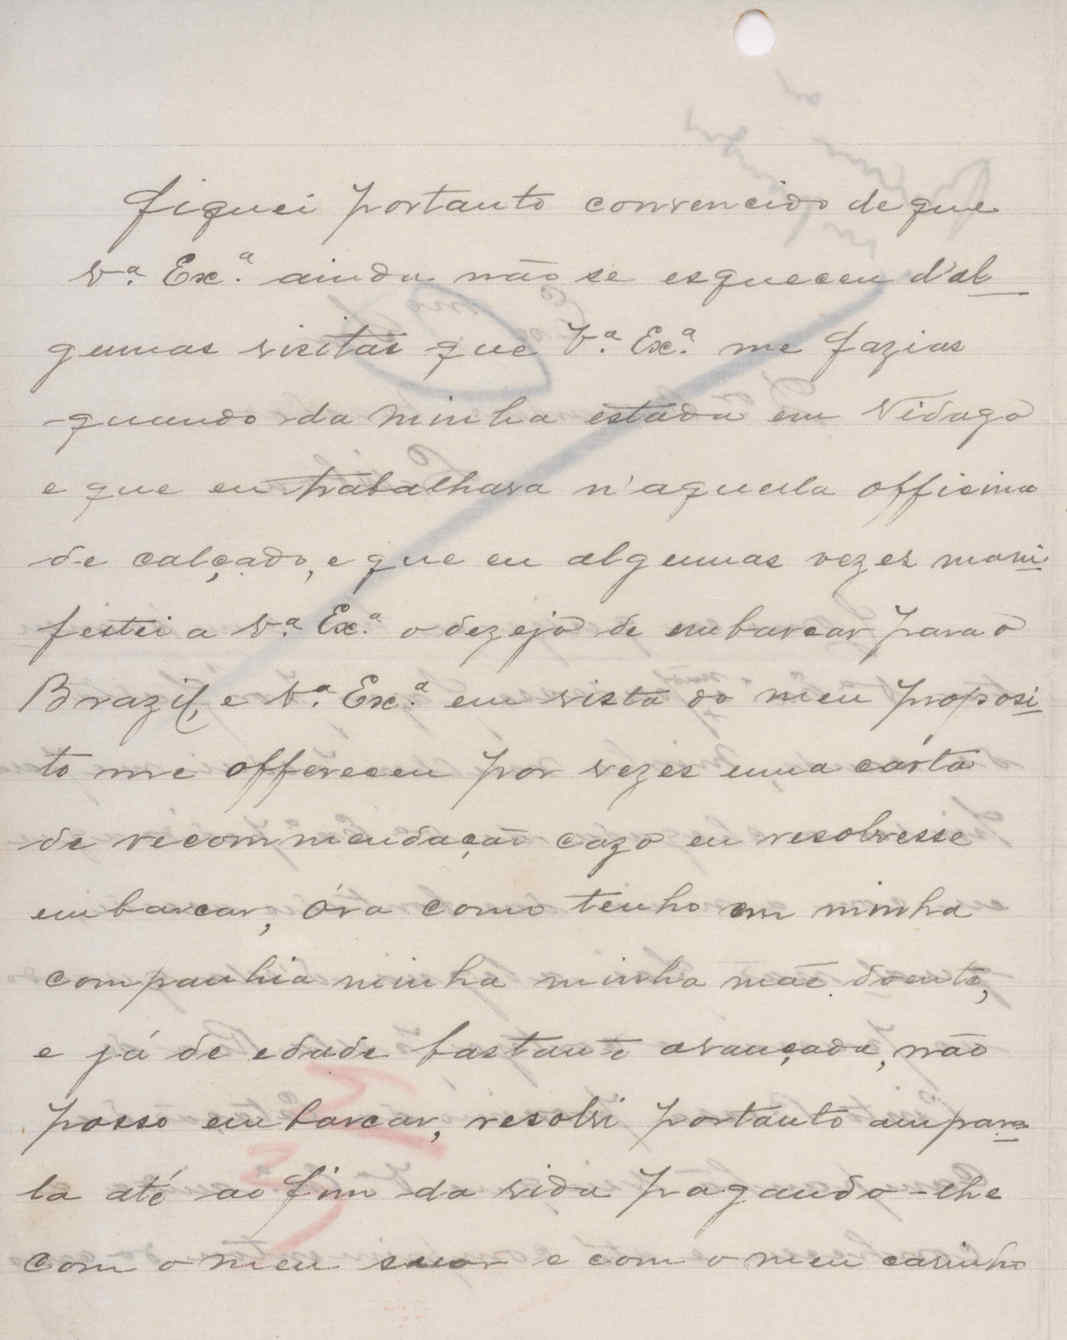 fiquei portanto convencido de que
V.ª Ex.ª ainda não se esqueceu d'al
gumas visitas que V.ª Ex.ª me fazias
quando da minha estada em Vidago
e que eu trabalhava n'aquella officina
de calçado, e que eu algumas vezes mani
festei a V.ª Ex.ª o dezejo de embarcar para o
Brazil, e V.ª Ex.ª em vista do meu proposi
to me offereceu por vezes uma cárta
de recommendação cazo eu resolvesse
embarcar, óra como tenho em minha
companhia minha minha mãe doente,
e já de edade bastante avançada, não
posso embarcar, resolvi portanto ampara
la até ao fim da vida pagando-lhe
com o meu suor e com o meu carinho